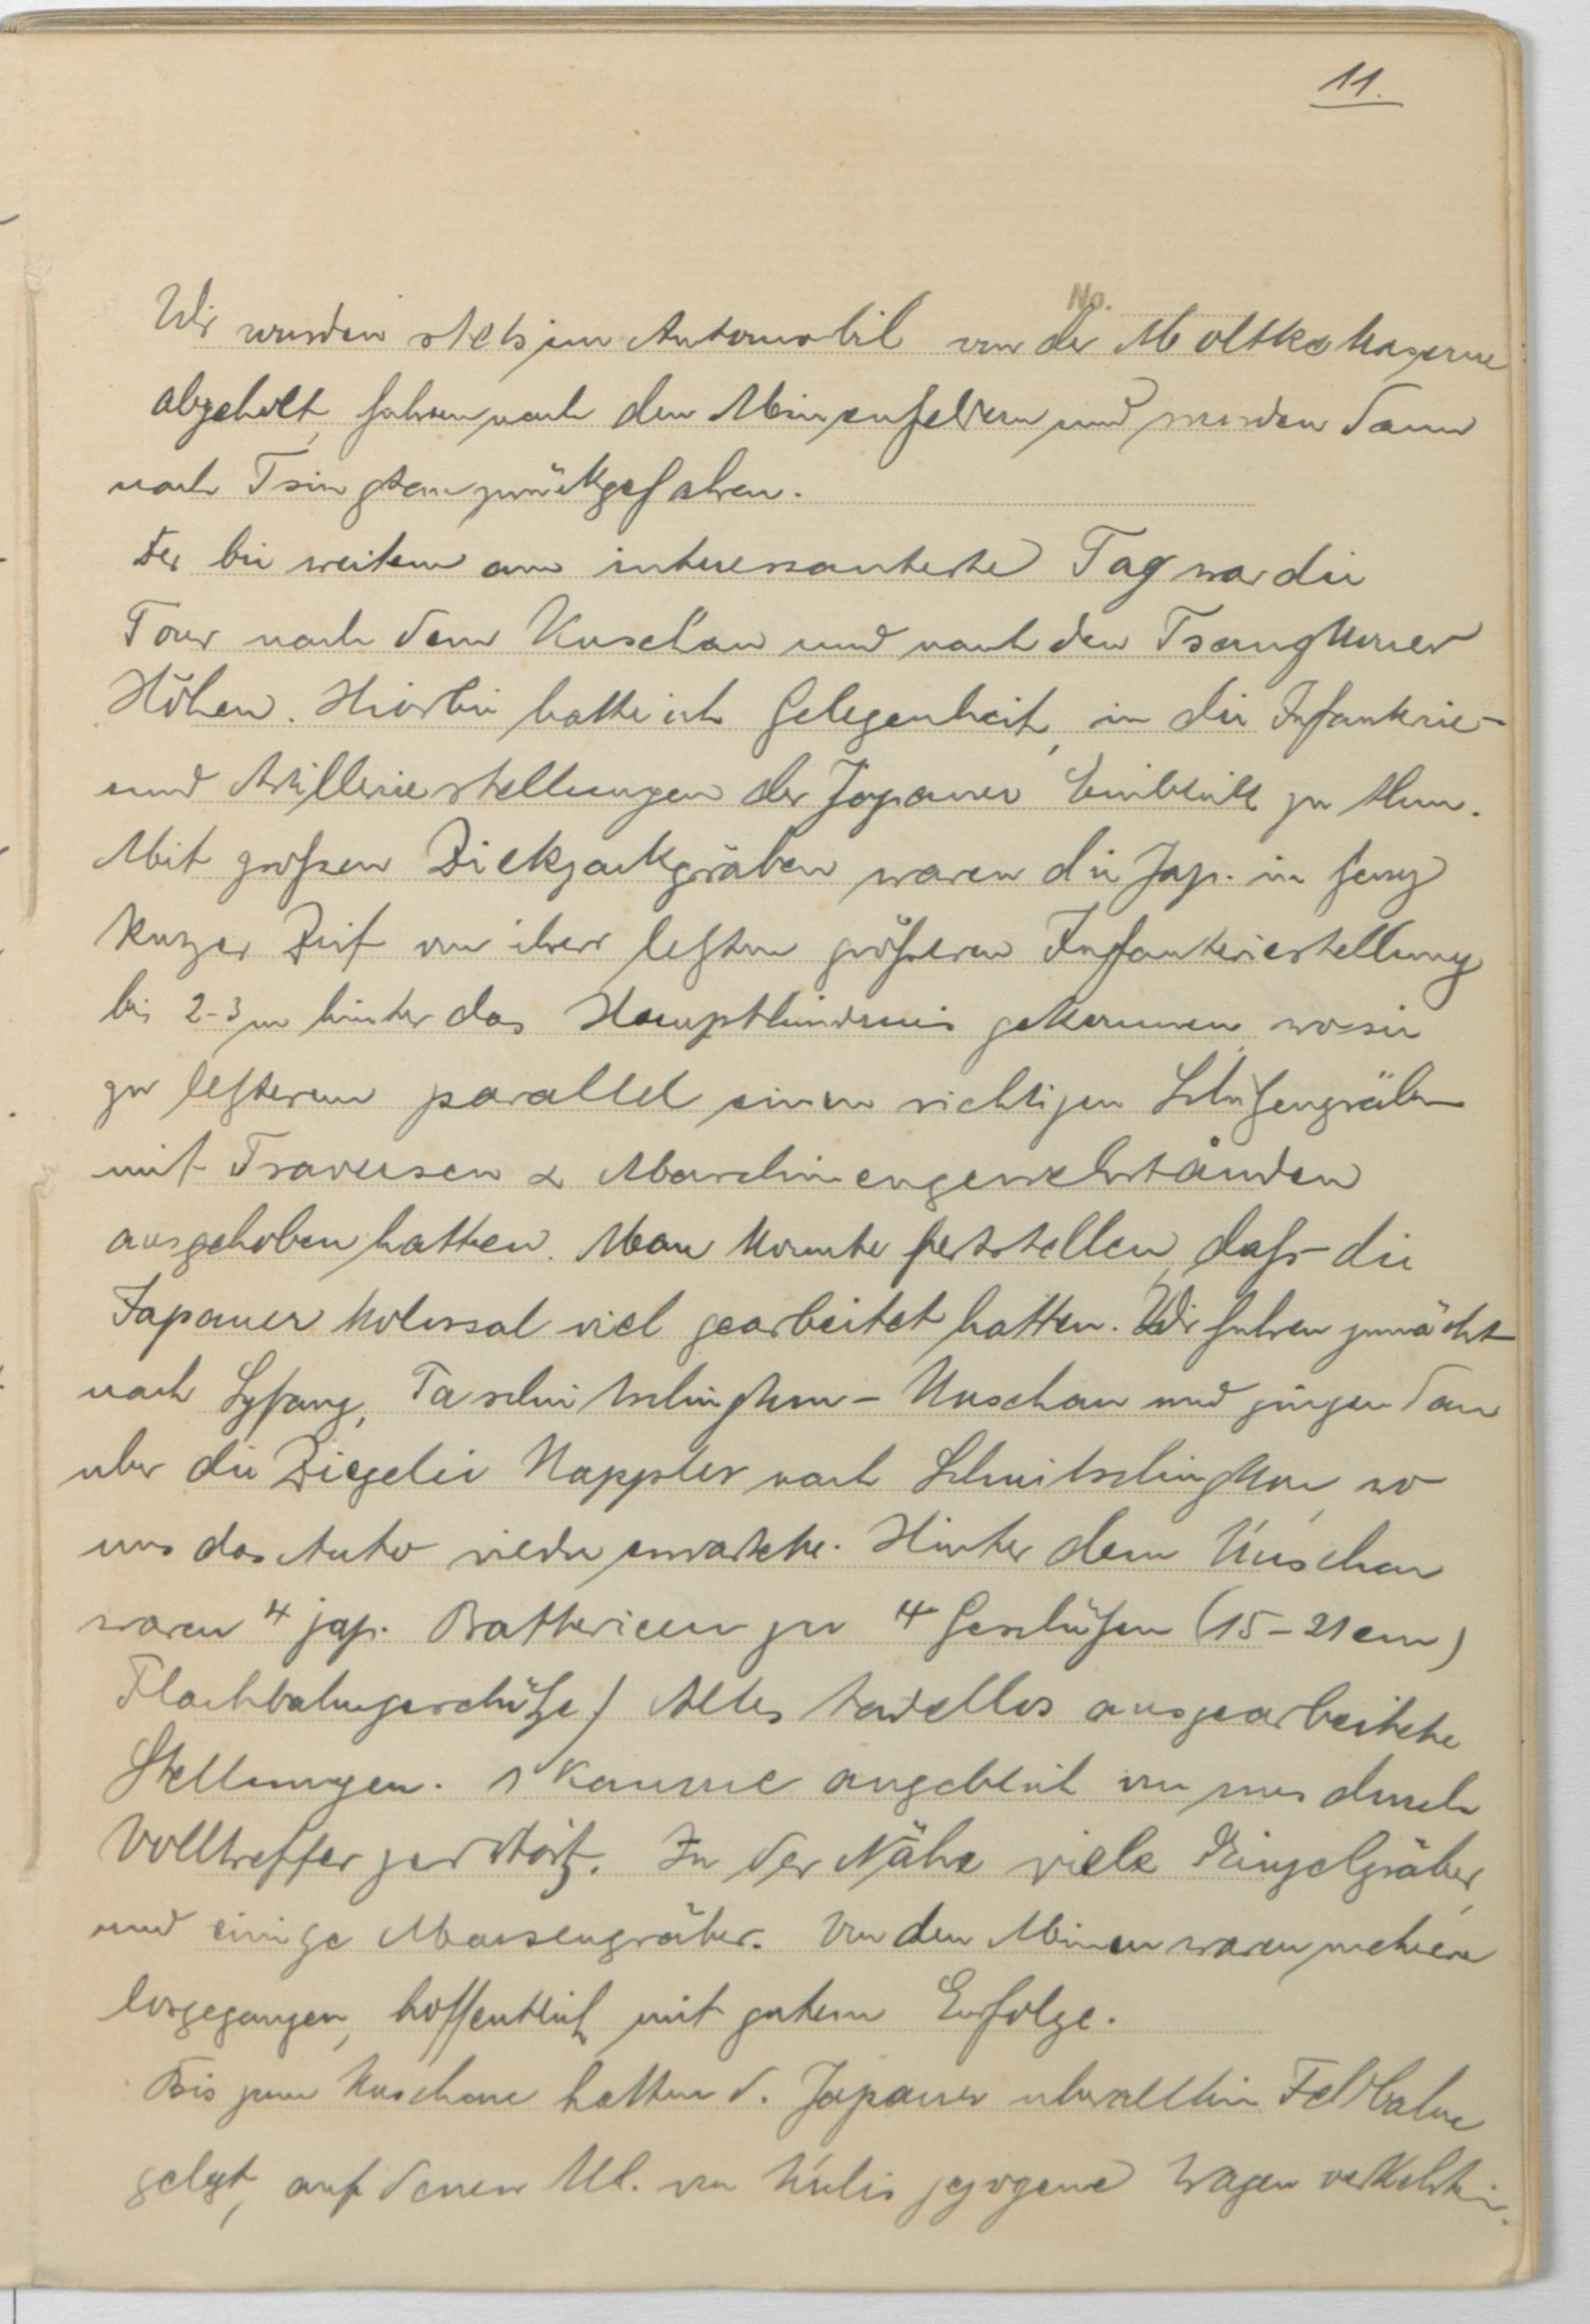 11.
No.
Wir wurden stets im Automobil von der Moltke Kaserne
abgeholt, fuhren nach den Minenfeldern und wurden dann
nach Tsingtau zurückgefahren.
Der bei weitem am interessanteste Tag war die
Tour nach dem Kuschan und nach den Tsangkouer
Höhen. Hierbei hatte ich Gelegenheit, in die Infanterie-
und Artilleriestellungen der Japaner Einblick zu thun.
Mit großen Zickzackgräben waren die Jap. in ganz
kurzer Zeit von ihrer letzten größeren Infanteriestellung
bis 2-3 m hinter das Haupthindernis gekommen, wo sie
zu letzterem parallel einen richtigen Schützengräben
mit Traversen & Maschinengewehrständen
ausgehoben hatten. Man konnte feststellen, daß die
Japaner kolossal viel gearbeitet hatten. Wir fuhren zunächst
nach Syfang, Taschintschingkou - Kuschan und gingen dann
über die Ziegelei Kappler nach Schuitschingkou, wo
uns das Auto wieder erwartete. Hinter dem Kuschan
waren 4 jap. Batterieen zu 4 Geschützen (15-21 cm)
Flachbahngeschütze) Alles tadellos ausgearbeitete
Stellungen. 1 Kanone angeblich von uns durch
Volltreffer zerstört. In der Nähe viele Einzelgräber,
und einige Massengräber. Von den Minen waren mehrere
losgegangen, hoffentlich mit gutem Erfolge.
Bis zum Kuschan hatten d. Japaner überallhin Feldbahn
gelegt, auf denen kl. von Kulis gezogene Wagen verkehrten.